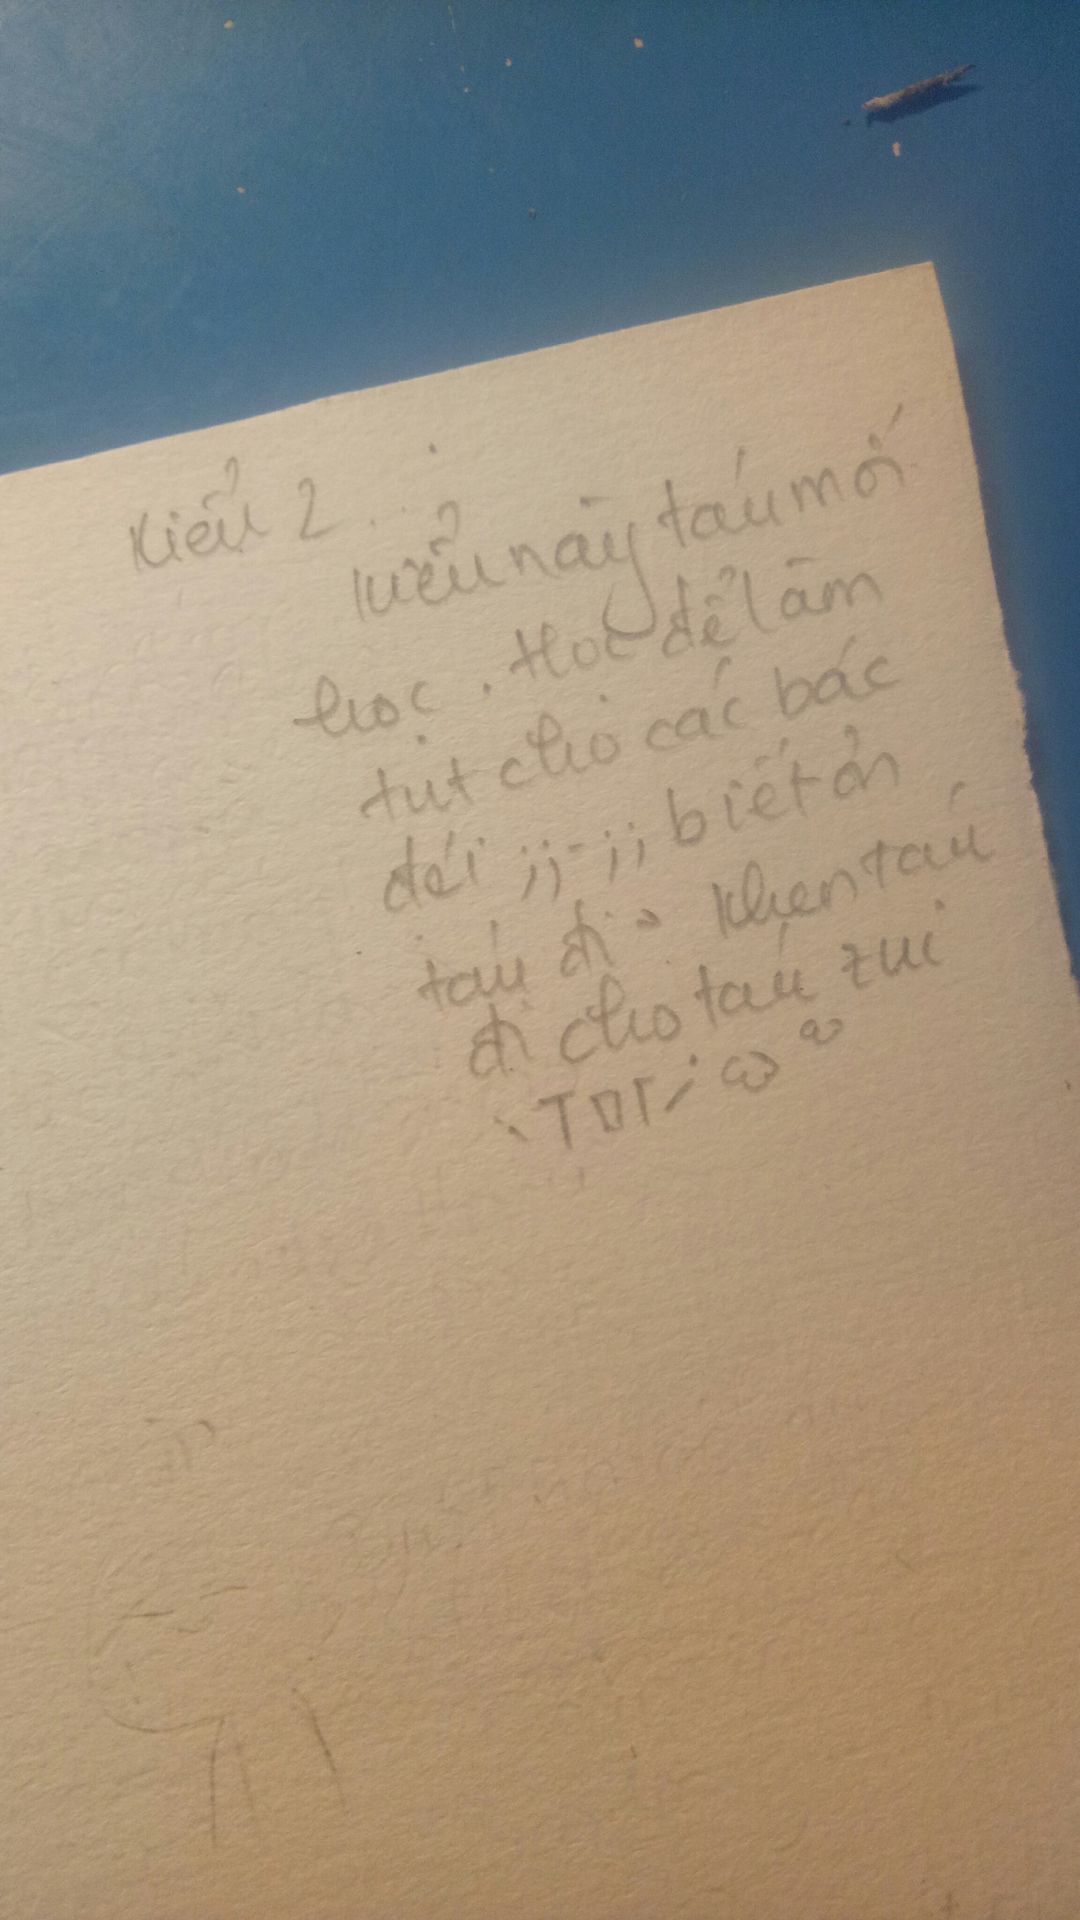 Kiểu 2 ...
kiểu này táu mới
học. Học để làm
tut cho các bác
đéi ;;-;; biết ơn
táu đi. Khen táu
đi cho táu zui
`TOT´ω